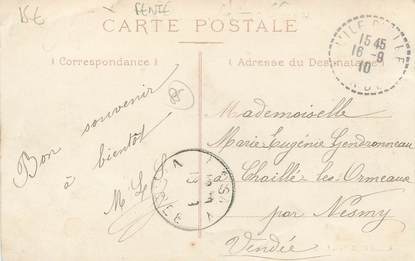 15€
CARTE POSTALE
Correspondance
Adresse du Destinataire
15 45
16 - 9
10
Bon souvenir
à bientôt
Mademoiselle
Marie Eugénie Gendronneau
à Chaillé les Ormeaux
par Nesmy
Vendée